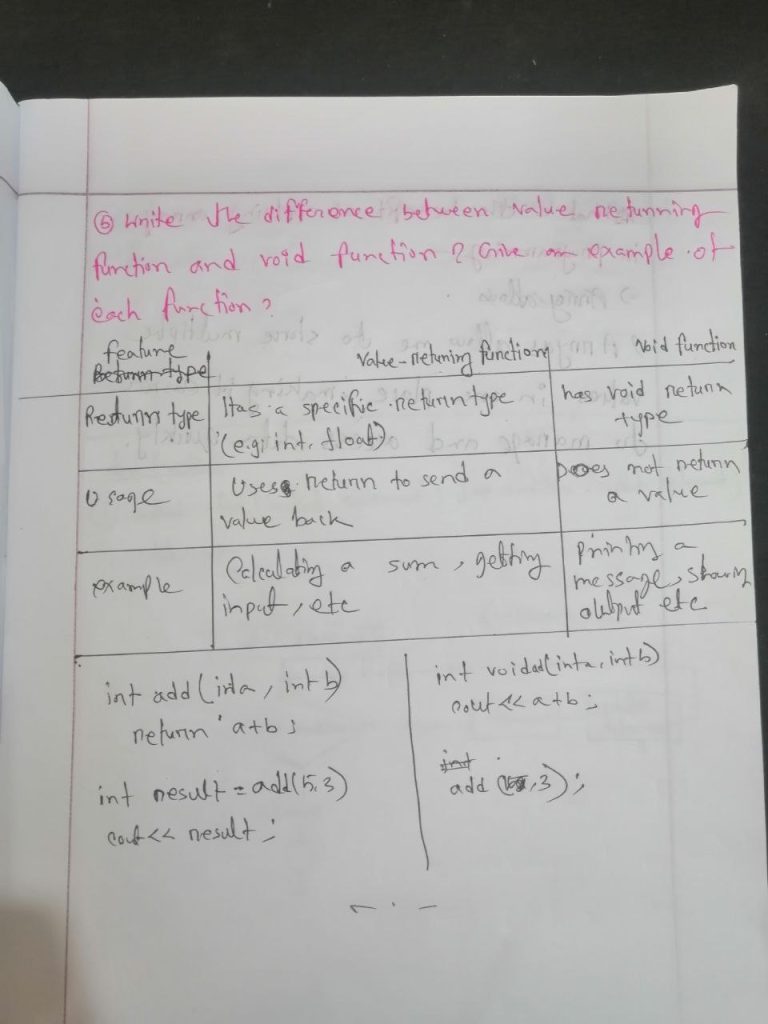 ⑤ Write the difference between value returning
function and void function? Give an example of
each function?
feature
Return type
value-returning function
void function
Return type
Has a specific return type
(e.g; int, float)
has void return
type
Usage
Uses return to send a
value back
Does not return
a value
example
Calculating a sum, getting
input, etc
printing a
message, showing
output etc
int add (int a, int b)
return a+b;
int result = add(5,3)
cout << result;
int void add(int a, int b)
cout << a+b;
int
add (5,3);